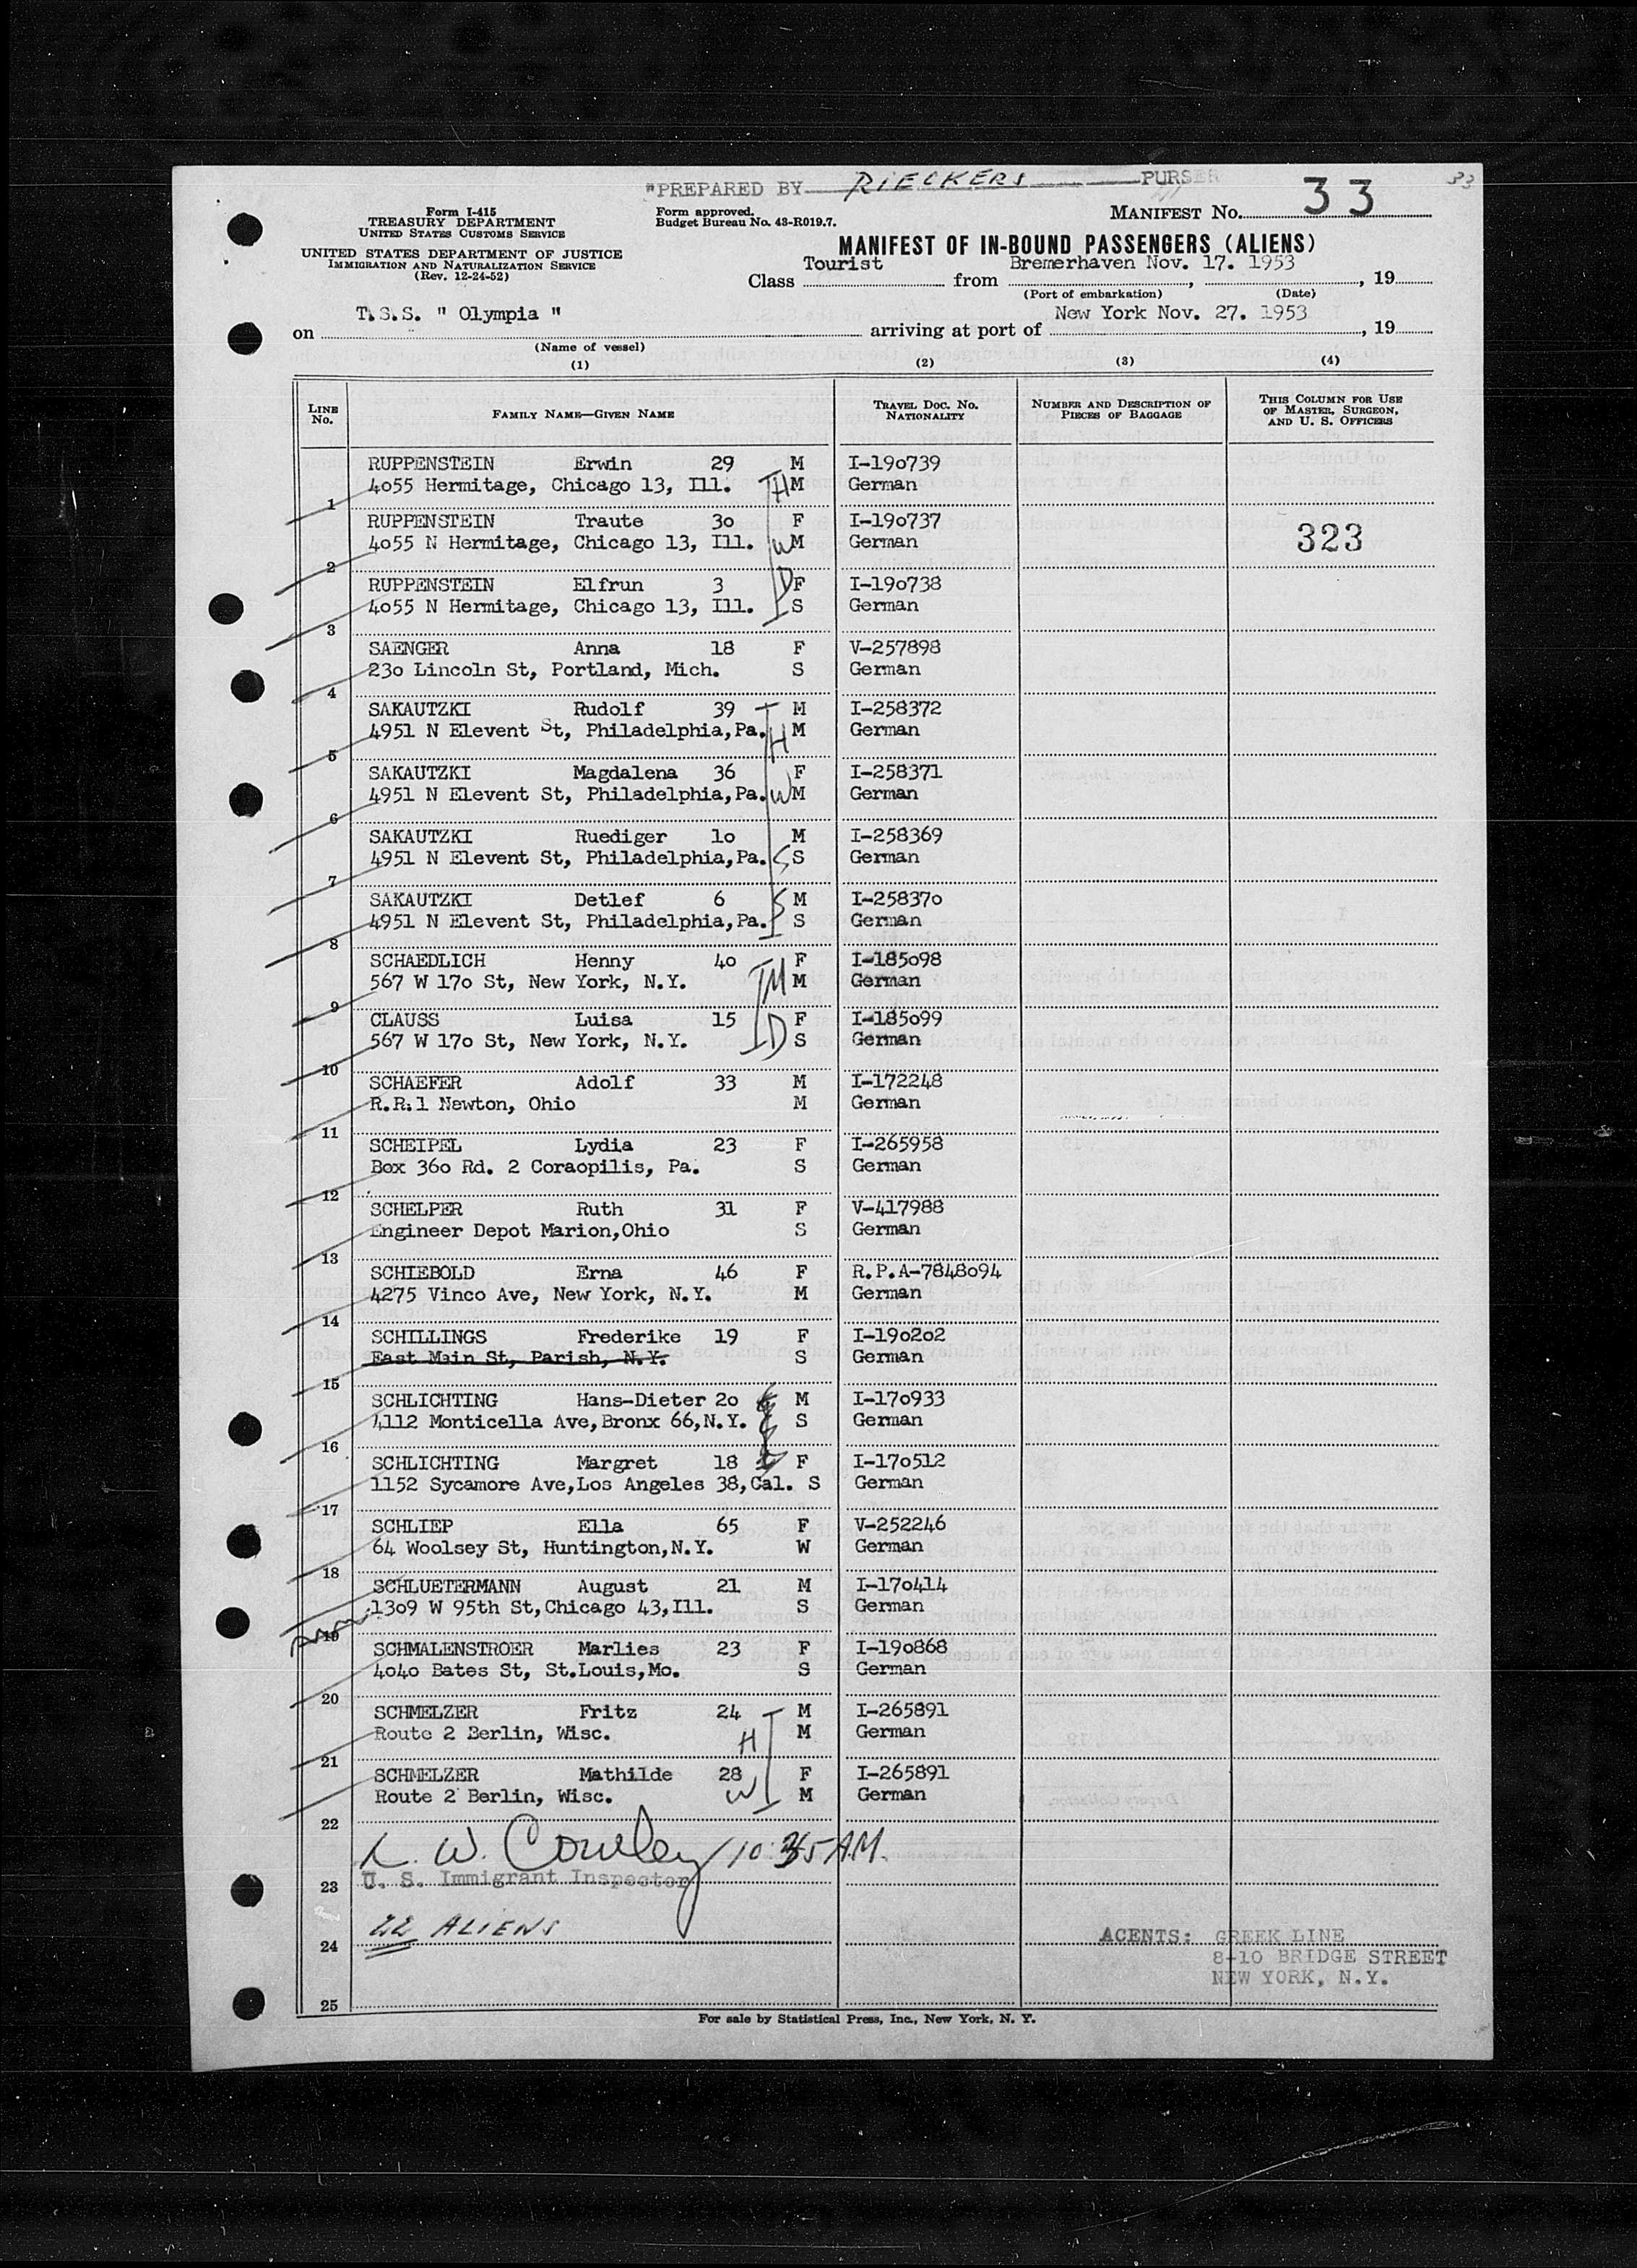 "PREPARED BY RIECKERS PURSER
33
Form I-415
TREASURY DEPARTMENT
UNITED STATES CUSTOMS SERVICE
UNITED STATES DEPARTMENT OF JUSTICE
IMMIGRATION AND NATURALIZATION SERVICE
(Rev. 12-24-52)
Form approved.
Budget Bureau No. 43-R019.7.
MANIFEST NO. 33
MANIFEST OF IN-BOUND PASSENGERS (ALIENS)
Class Tourist from Bremerhaven Nov. 17. 1953, 19
(Port of embarkation) (Date)
on T.S.S. " Olympia " arriving at port of New York Nov. 27. 1953, 19
(Name of vessel)
(1) (2) (3) (4)
LINE NO.
FAMILY NAME—GIVEN NAME
TRAVEL DOC. NO. NATIONALITY
NUMBER AND DESCRIPTION OF PIECES OF BAGGAGE
THIS COLUMN FOR USE OF MASTER, SURGEON, AND U. S. OFFICERS
RUPPENSTEIN Erwin 29 M I-190739
1 4055 Hermitage, Chicago 13, Ill. H M German
RUPPENSTEIN Traute 30 F I-190737
2 4055 N Hermitage, Chicago 13, Ill. W M German 323
RUPPENSTEIN Elfrun 3 D F I-190738
3 4055 N Hermitage, Chicago 13, Ill. S German
SAENGER Anna 18 F V-257898
4 230 Lincoln St, Portland, Mich. S German
SAKAUTZKI Rudolf 39 M I-258372
5 4951 N Elevent St, Philadelphia,Pa. H M German
SAKAUTZKI Magdalena 36 F I-258371
6 4951 N Elevent St, Philadelphia,Pa. W M German
SAKAUTZKI Ruediger 10 M I-258369
7 4951 N Elevent St, Philadelphia,Pa. S S German
SAKAUTZKI Detlef 6 S M I-258370
8 4951 N Elevent St, Philadelphia,Pa. S German
SCHAEDLICH Henny 40 F I-185098
9 567 W 170 St, New York, N.Y. M M German
CLAUSS Luisa 15 F I-185099
10 567 W 170 St, New York, N.Y. D S German
SCHAEFER Adolf 33 M I-172248
11 R.R.1 Newton, Ohio M German
SCHEIPEL Lydia 23 F I-265958
12 Box 360 Rd. 2 Coraopilis, Pa. S German
SCHELPER Ruth 31 F V-417988
13 Engineer Depot Marion,Ohio S German
SCHIEBOLD Erna 46 F R.P.A-7848094
14 4275 Vinco Ave, New York, N.Y. M German
SCHILLINGS Frederike 19 F I-190202
15 East Main St, Parish, N.Y. S German
SCHLICHTING Hans-Dieter 20 M I-170933
16 4112 Monticella Ave,Bronx 66,N.Y. S German
SCHLICHTING Margret 18 F I-170512
17 1152 Sycamore Ave,Los Angeles 38,Cal. S German
SCHLIEP Ella 65 F V-252246
18 64 Woolsey St, Huntington,N.Y. W German
SCHLUETERMANN August 21 M I-170414
19 1309 W 95th St,Chicago 43,Ill. S German
SCHMALENSTROER Marlies 23 F I-190868
20 4040 Bates St, St.Louis,Mo. S German
SCHMELZER Fritz 24 M I-265891
21 Route 2 Berlin, Wisc. H M German
SCHMELZER Mathilde 28 F I-265891
22 Route 2 Berlin, Wisc. W M German
W. Cowley 10 35 AM.
23 U. S. Immigrant Inspector
24 22 ALIENS
25
AGENTS: GREEK LINE
8-10 BRIDGE STREET
NEW YORK, N.Y.
For sale by Statistical Press, Inc., New York, N. Y.